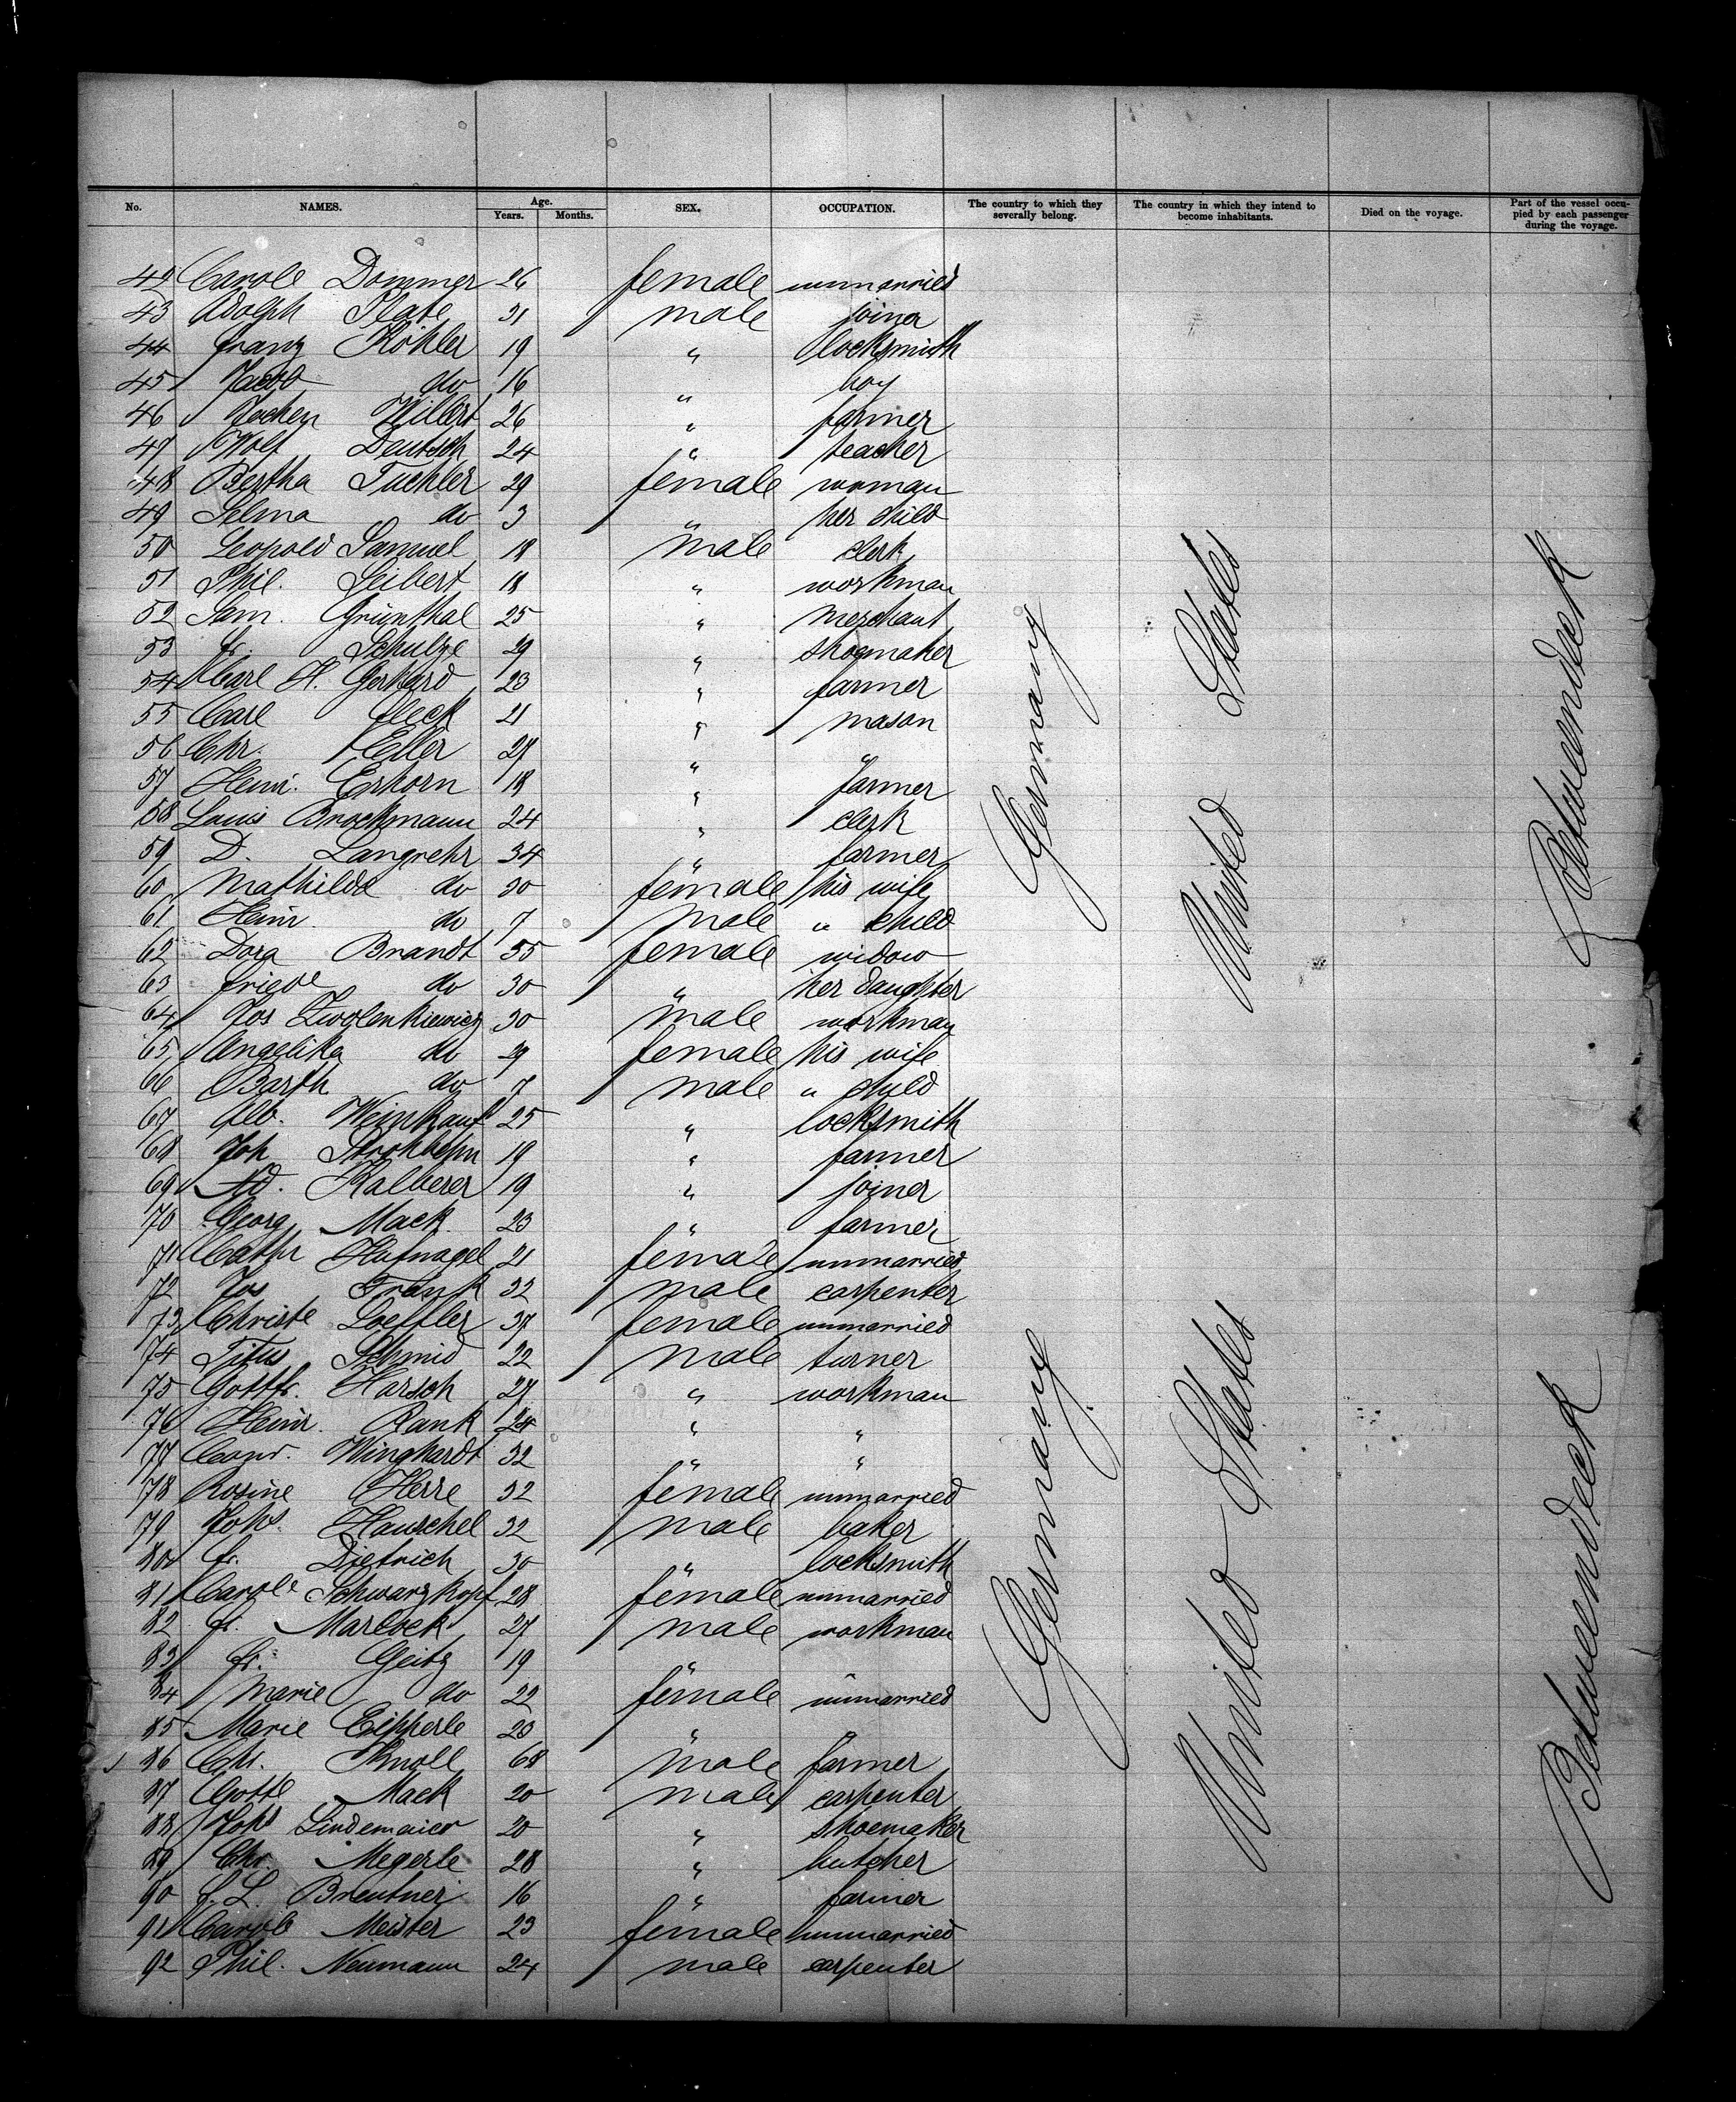 No. NAMES. Age. Years. Months. SEX. OCCUPATION. The country to which they severally belong. The country in which they intend to become inhabitants. Died on the voyage. Part of the vessel occupied by each passenger during the voyage.
42 Carole Dommer 26 female unmarried
43 Adolph Plate 31 male joiner
44 Franz Köhler 19 " locksmith
45 Jacob do 16 " boy
46 Jochen Willert 26 " farmer
47 Wolf Deutsch 24 " teacher
48 Bertha Tuchler 29 female woman
49 Selma do 3 " her child
50 Leopold Samuel 18 male clerk
51 Phil. Seibert 18 " workman
52 Sam. Grünthal 25 " merchant
53 Fr. Schulze 29 " shoemaker
54 Carl H. Gerhard 23 " farmer
55 Carl Fleck 21 " mason
56 Chr. Eller 27 " "
57 Heinr. Erhorn 18 " farmer
58 Louis Brockmann 24 " clerk
59 D. Langrehr 34 " farmer
60 Mathilde do 30 female his wife
61 Heinr. do 7 male " child
62 Dora Brandt 55 female widow
63 Friede do 30 " her daughter
64 Jos Zwolenkiewicz 30 male workman
65 Angelika do 29 female his wife
66 Barth do 7 male " child
67 Alb. Weinkauf 25 " locksmith
68 Joh Strohbehn 19 " farmer
69 Ad. Kalberer 19 " joiner
70 Georg Mack 23 " farmer
71 Cathr Hufnagel 21 female unmarried
72 Jos Frank 32 male carpenter
73 Christe Loeffler 37 female unmarried
74 Titus Schmid 22 male turner
75 Gottfr. Harsch 27 " workman
76 Heinr. Rank 24 " "
77 Conr. Winghardt 32 " "
78 Rosine Herre 32 female unmarried
79 Johs. Hauschel 32 male baker
80 Fr. Dietrich 30 " locksmith
81 Carole Schwarzkopf 28 female unmarried
82 Fr. Marlock 27 male workman
83 Fr. Geitz 19 " "
84 Marie do 22 female unmarried
85 Marie Eipperle 23 "
86 Chr. Knoll 68 male farmer
87 Gottl Mack 20 male carpenter
88 Johs Lindemaier 20 " shoemaker
89 Chr. Megerle 28 " butcher
90 F. L. Breutner 16 " farmer
91 Carole Meister 23 female unmarried
92 Phil. Neumann 24 male carpenter
Germany
United States
Betweendeck
Germany
United States
Betweendeck